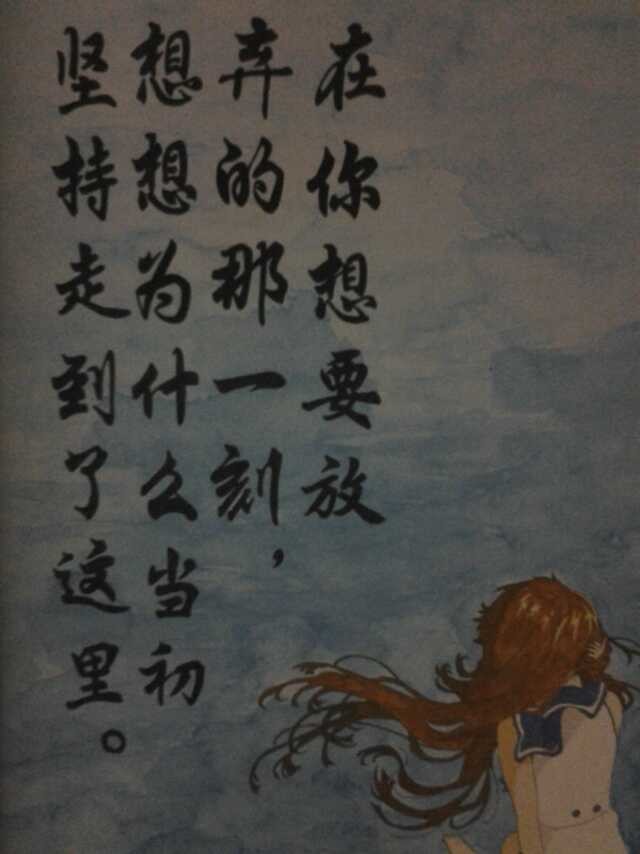 在你想要放
弃的那一刻，
想想为什么当初
坚持走到了这里。